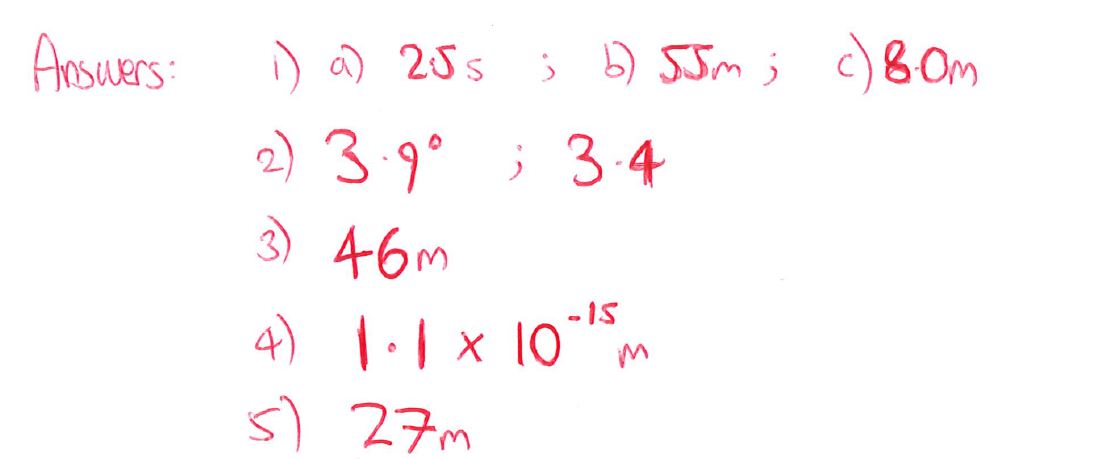 Answers: 1) a) 2.5 s ; b) 55m ; c) 8.0m
2) 3.9° ; 3.4
3) 46m
4) 1.1 x 10⁻¹⁵ m
5) 27m